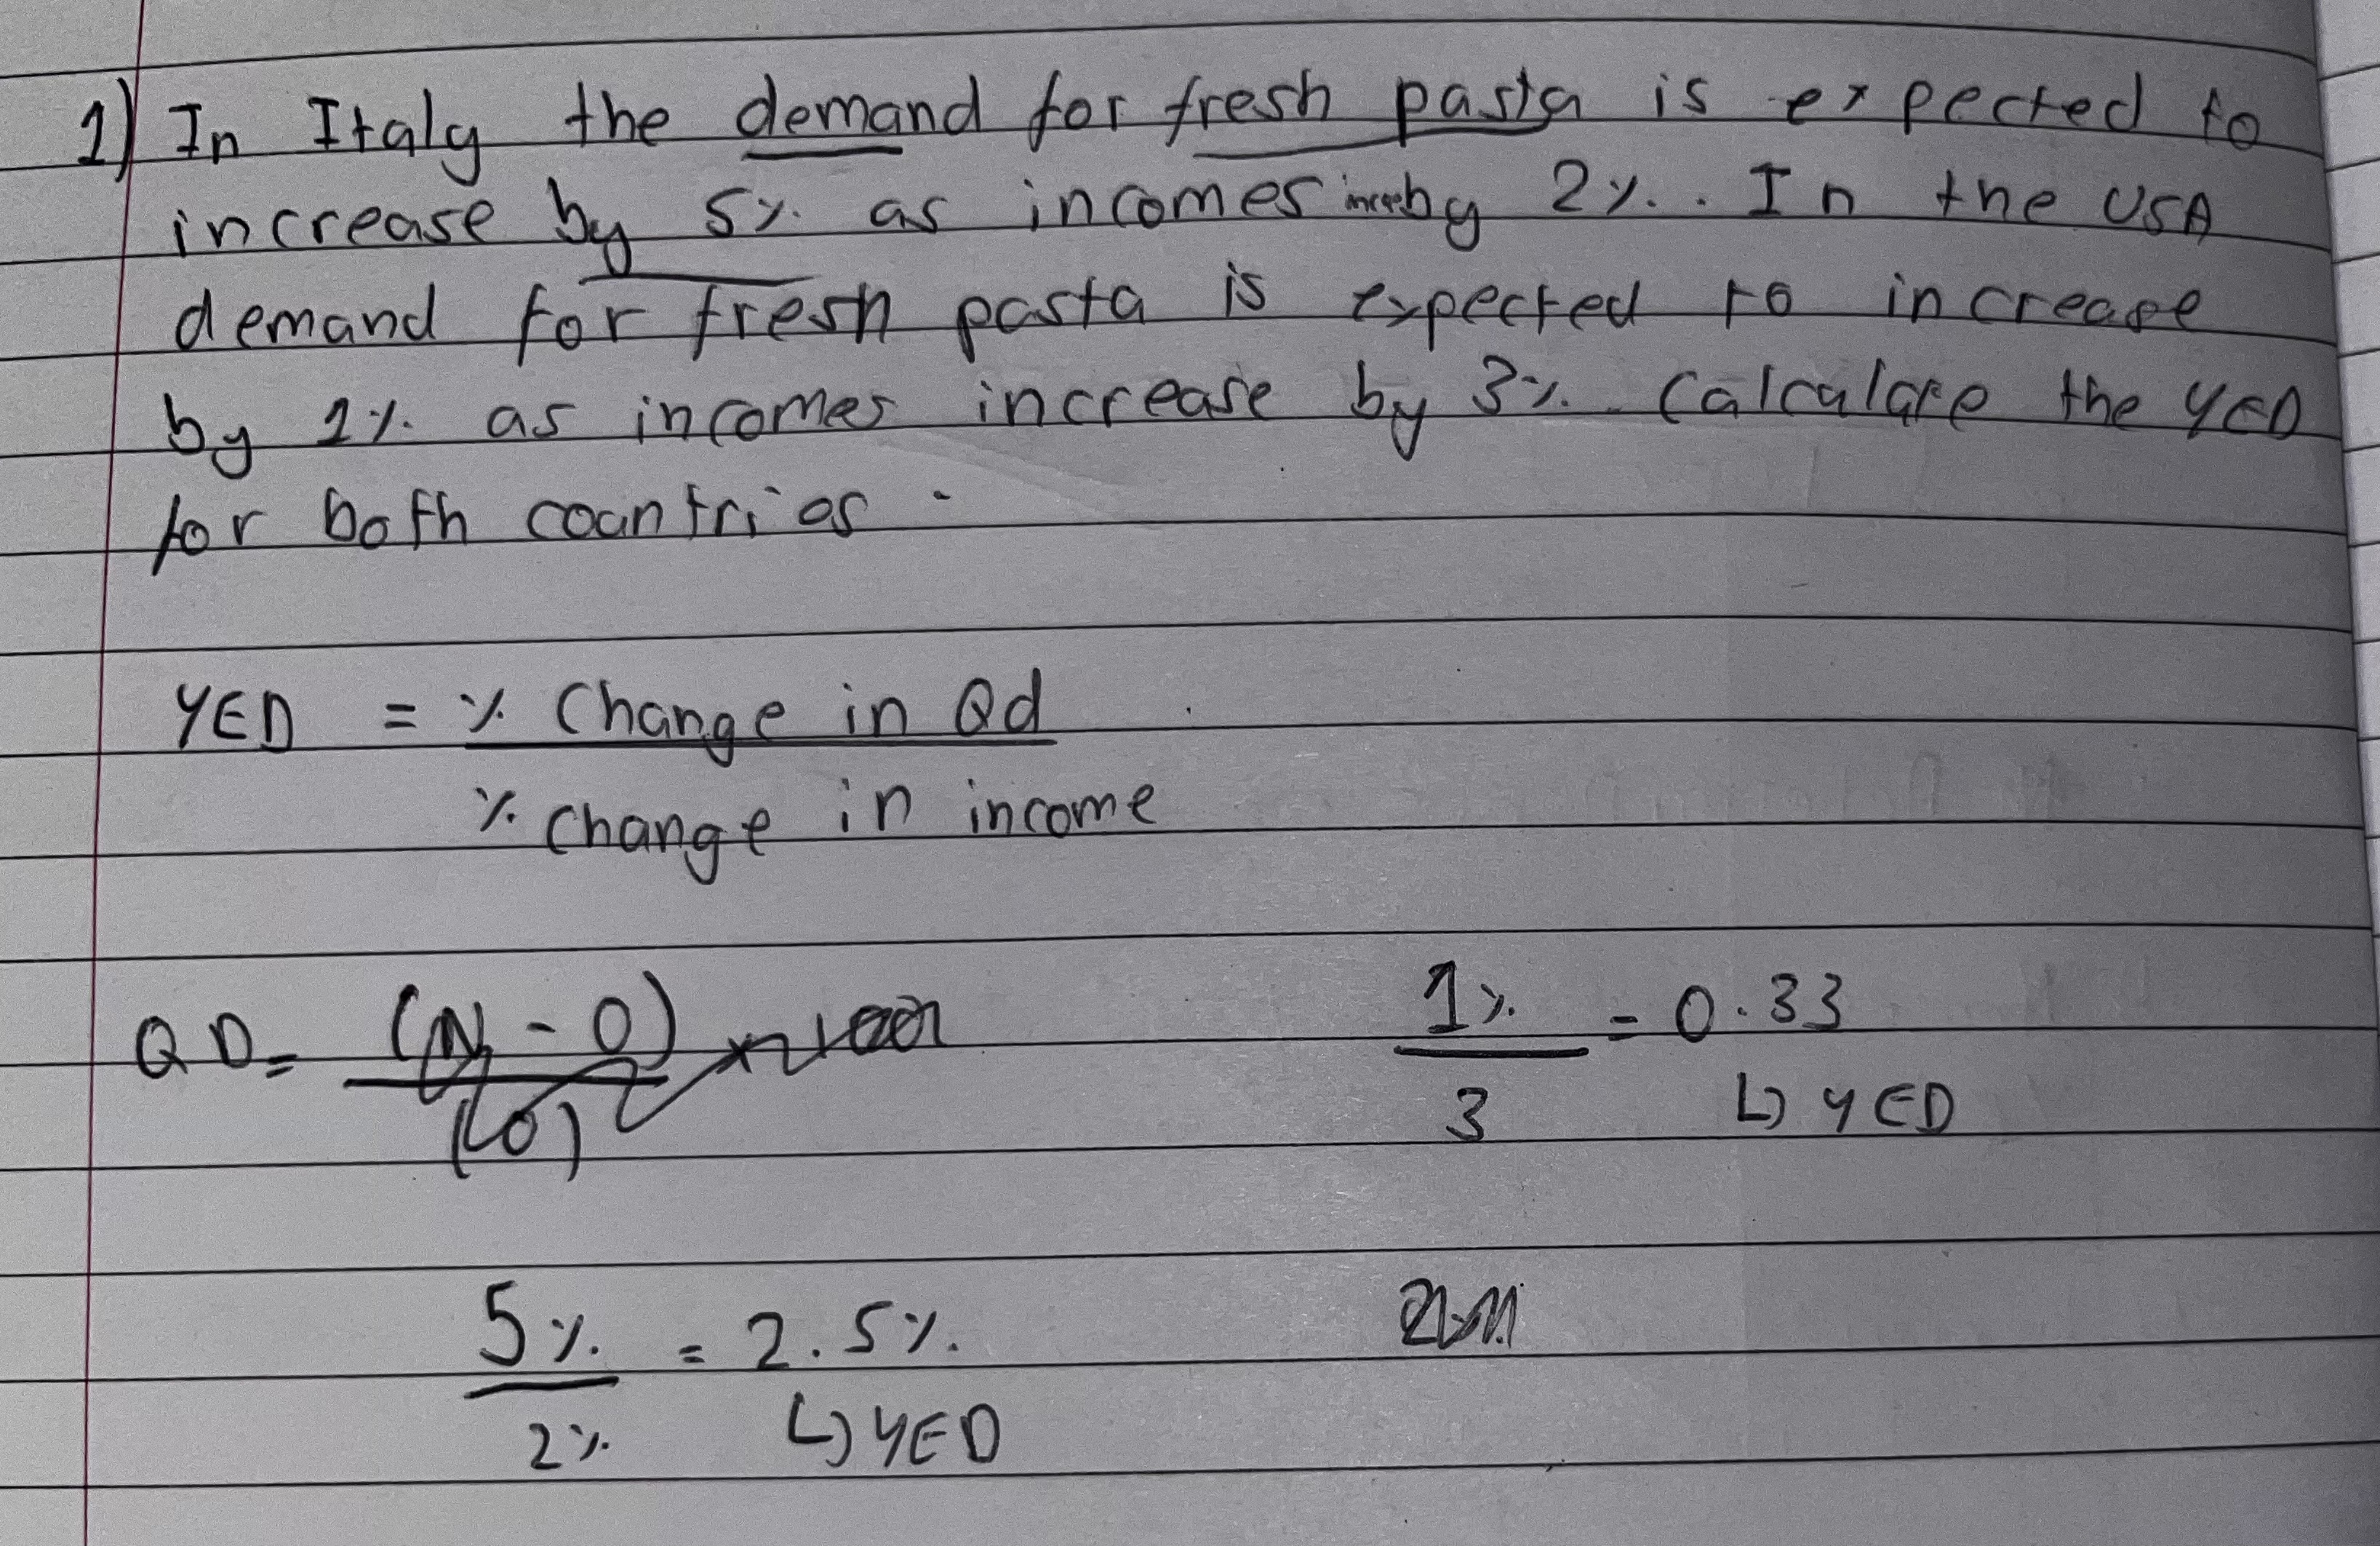 1) In Italy the demand for fresh pasta is expected to
increase by 5% as incomes by 2%. In the USA
demand for fresh pasta is expected to increase
by 1% as incomes increase by 3%. Calculate the YED
for both countries.
YED = % Change in Qd
% Change in income
QD = (N - O) x 100
(O)
1% = 0.33
3 ↳ YED
5% = 2.5%
2% ↳ YED